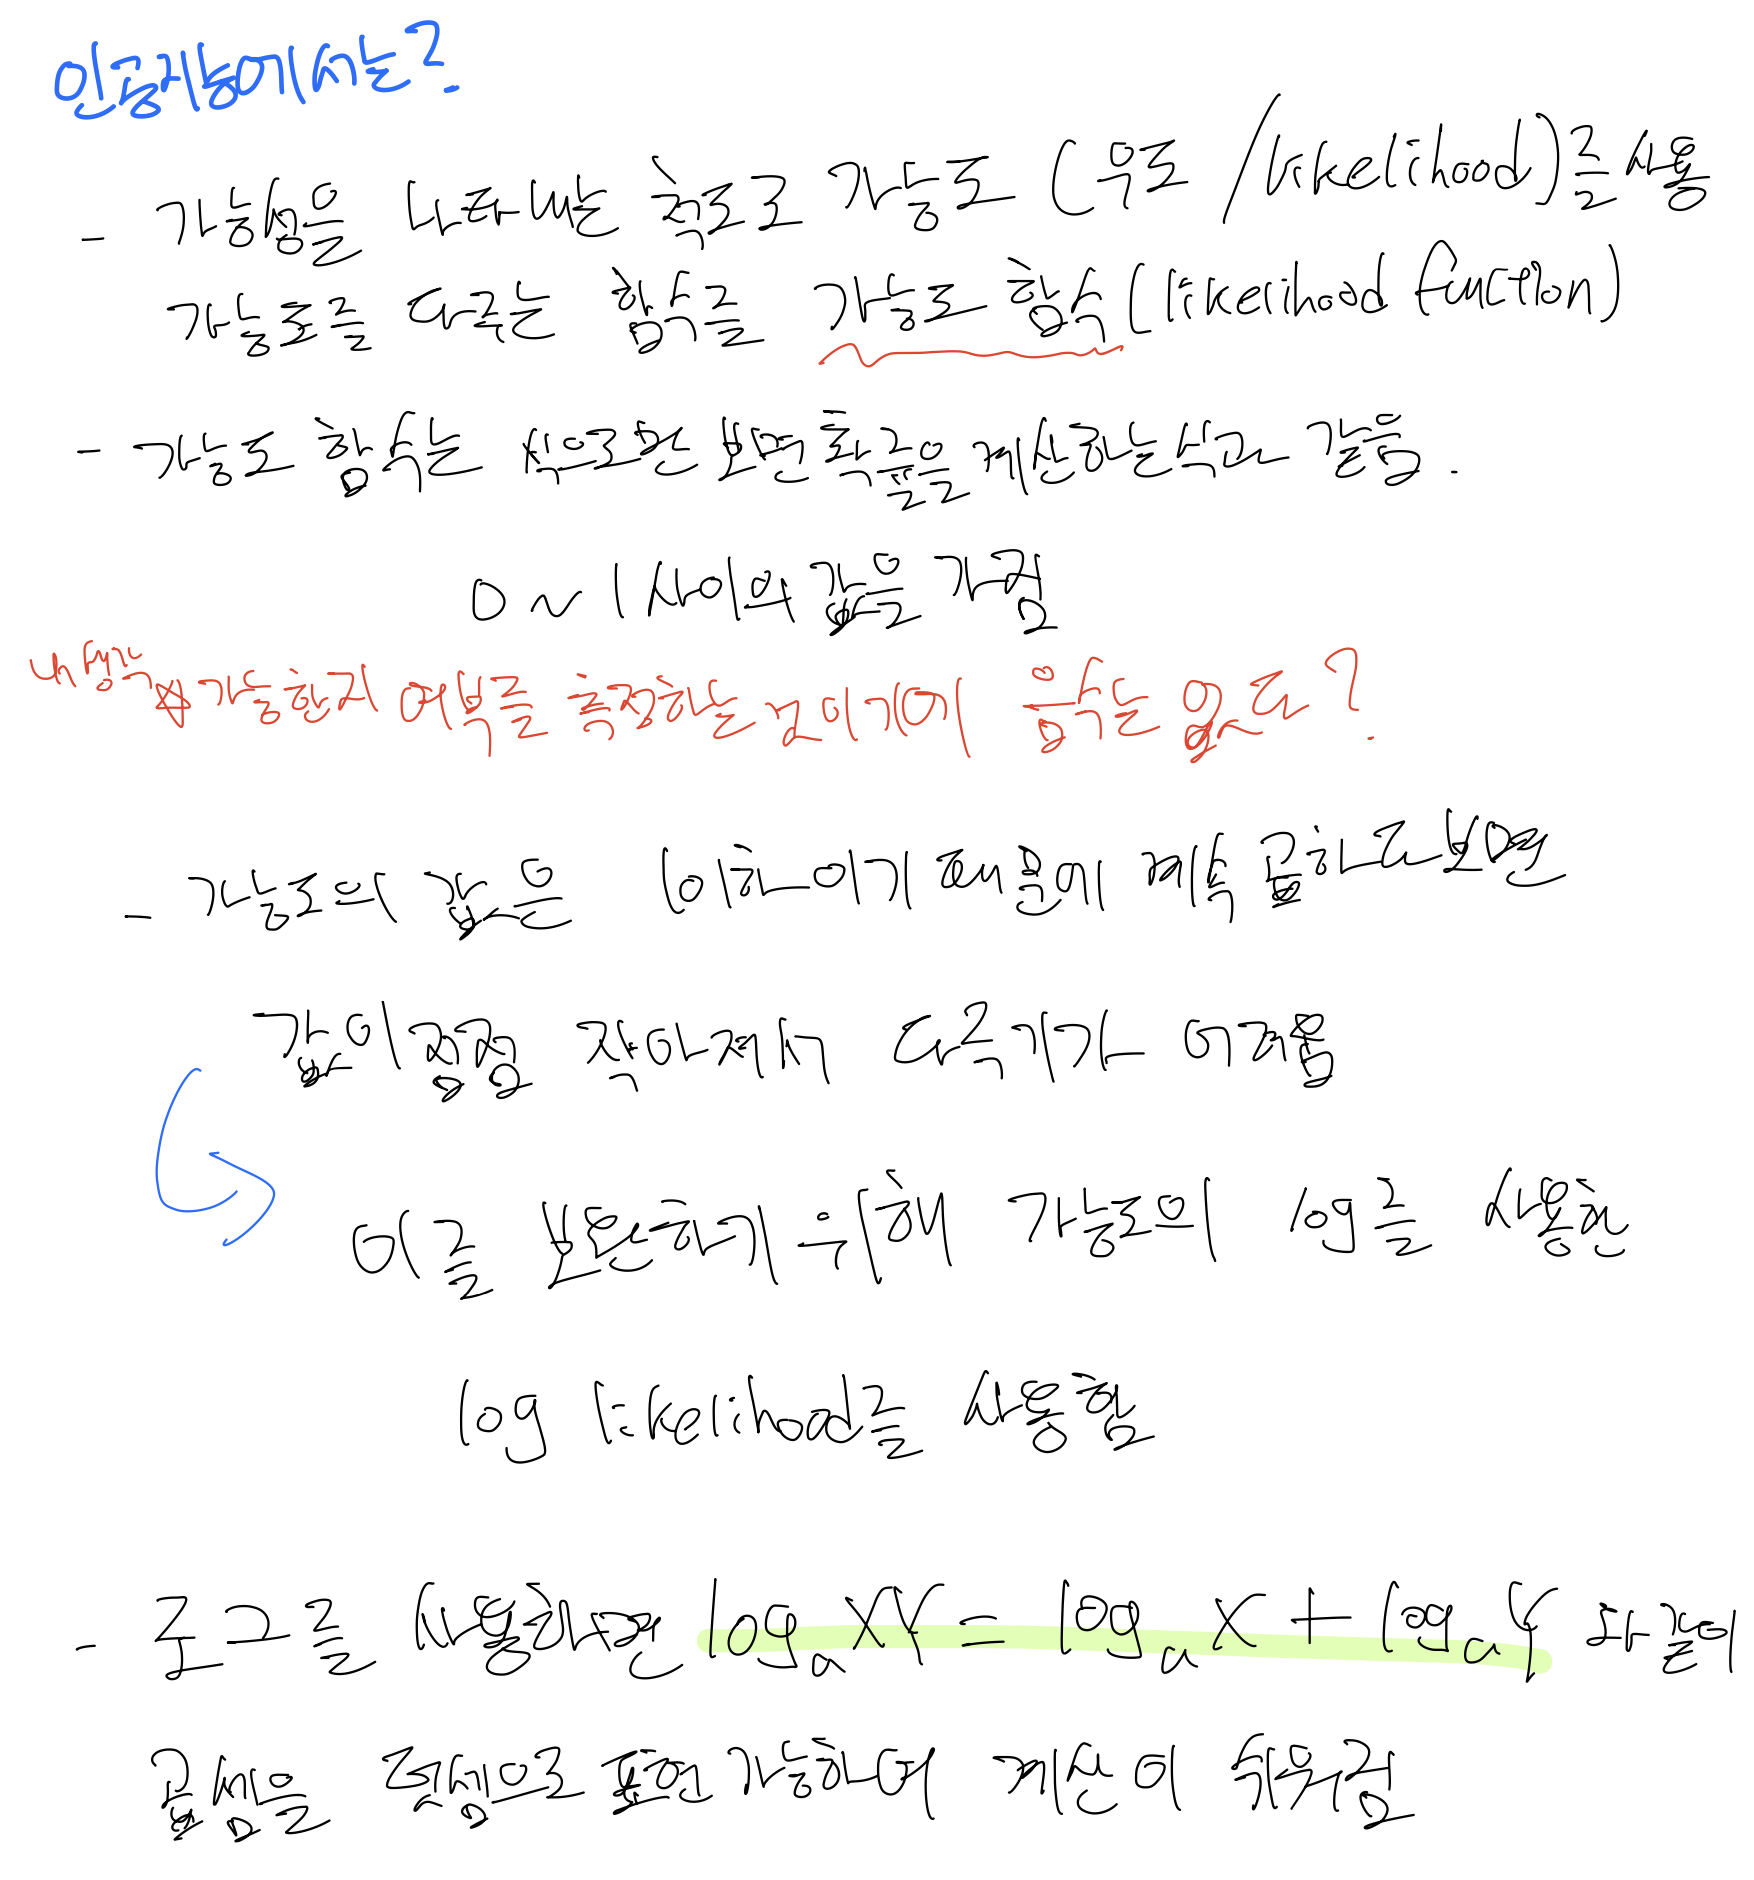 인공지능에서는?
- 가능성을 나타내는 척도로 가능도 (우도 / likelihood)를 사용
가능도를 다루는 함수를 가능도 함수 (likelihood function)
- 가능도 함수는 식으로만 보면 확률을 계산하는 식과 같음.
0 ~ 1 사이의 값을 가짐
내 생각 ☆ 가능한지 여부를 측정하는 것이기에 음수는 없다?
- 가능도의 값은 1 이하이기 때문에 계속 곱하다보면
값이 점점 작아져서 다루기가 어려움
이를 보완하기 위해 가능도의 log를 사용한
log likelihood를 사용함
- 로그를 사용하면 logₐXY = logₐX + logₐY 와 같이
곱셈을 덧셈으로 표현 가능하여 계산이 쉬워짐